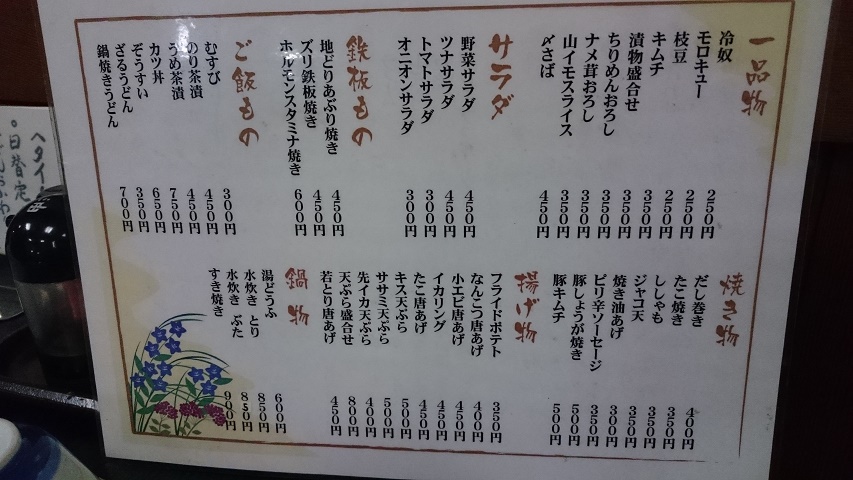 一品物
冷奴 250円
モロキュー 250円
枝豆 250円
キムチ 350円
漬物盛合せ 350円
ちりめんおろし 350円
ナメ茸おろし 350円
山イモスライス 350円
〆さば 450円
サラダ
野菜サラダ 450円
ツナサラダ 450円
トマトサラダ 300円
オニオンサラダ 300円
鉄板もの
地どりあぶり焼き 450円
ズリ鉄板焼き 450円
ホルモンスタミナ焼き 600円
ご飯もの
むすび 300円
のり茶漬 450円
うめ茶漬 450円
カツ丼 750円
ぞうすい 650円
ざるうどん 350円
鍋焼きうどん 700円
焼き物
だし巻き 400円
たこ焼き 350円
ししゃも 350円
ジャコ天 350円
焼き油あげ 300円
ピリ辛ソーセージ 350円
豚しょうが焼き 500円
豚キムチ 500円
揚げ物
フライドポテト 350円
なんこつ唐あげ 400円
小エビ唐あげ 450円
イカリング 450円
たこ唐あげ 450円
キス天ぷら 500円
ササミ天ぷら 500円
先イカ天ぷら 400円
天ぷら盛合せ 800円
若とり唐あげ 450円
鍋物
湯どうふ 600円
水炊き とり 850円
水炊き ぶた 850円
すき焼き 900円
●日替定